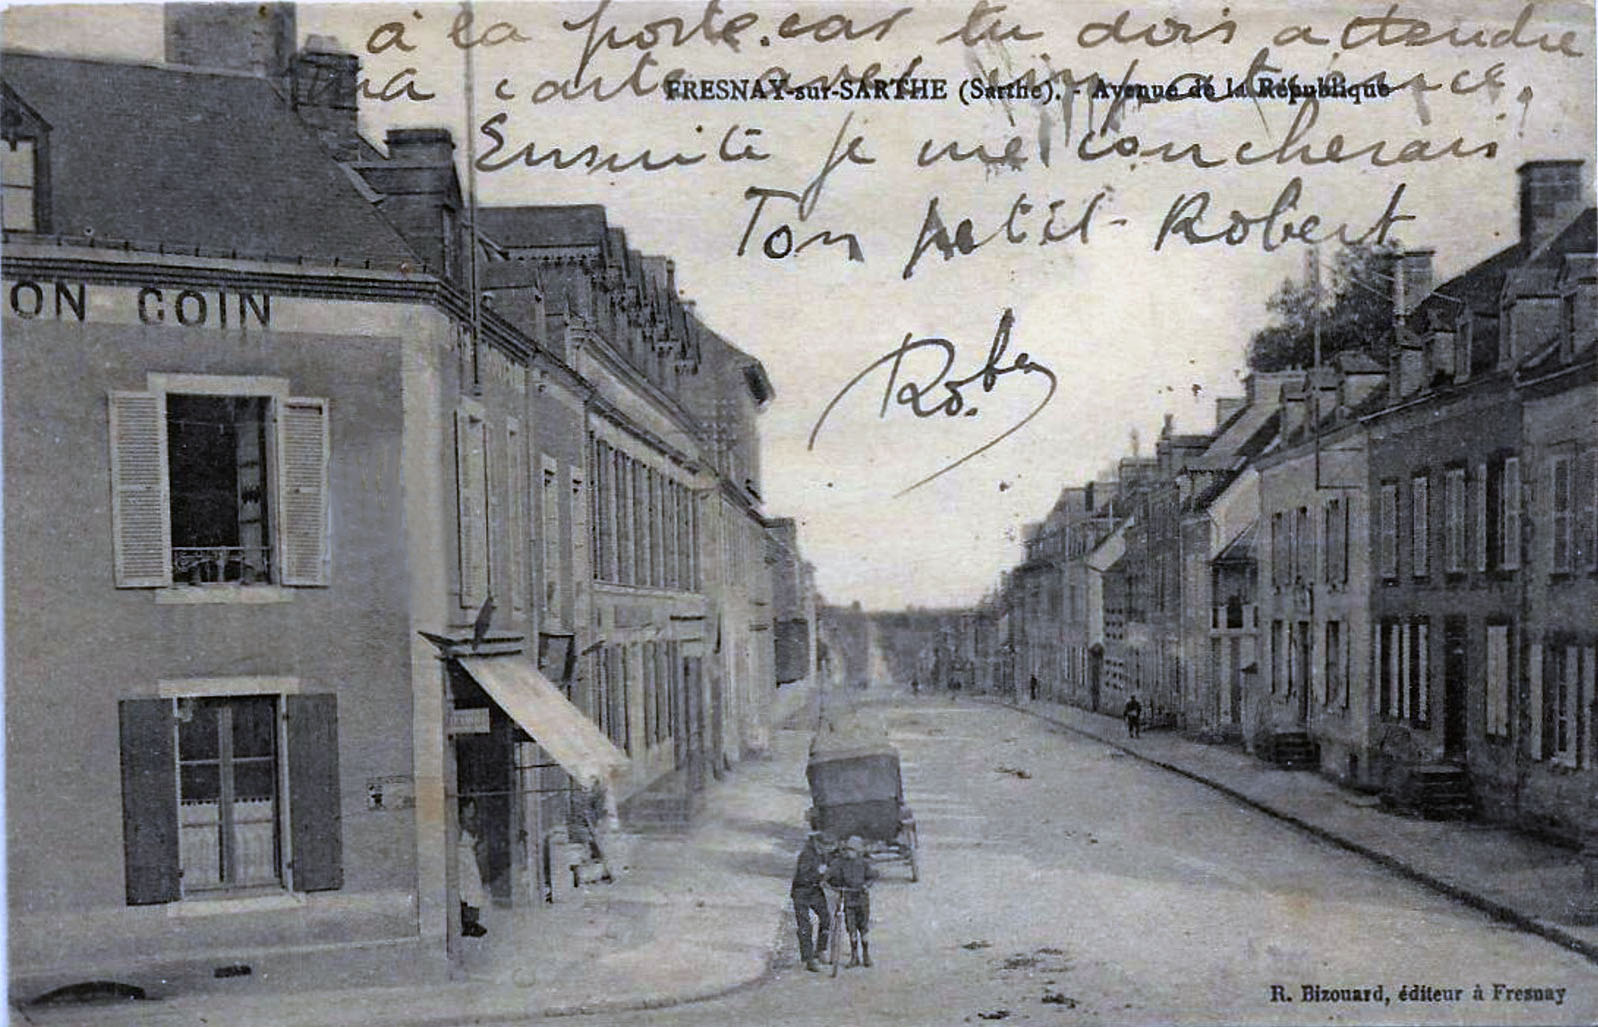 à la porte. car tu dois attendre
ma carte avec impatience.
FRESNAY-sur-SARTHE (Sarthe). - Avenue de la République
Ensuite je me coucherais
Ton petit Robert
Rob.
ON COIN
R. Bizouard, éditeur à Fresnay